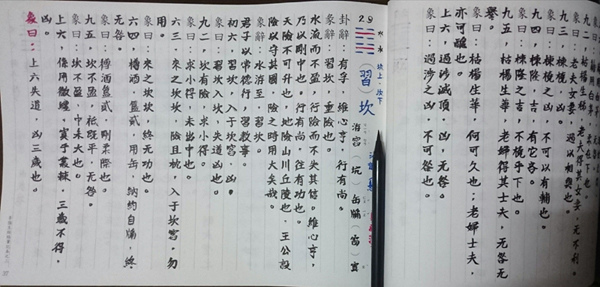 九二，枯楊生稊，老夫得其女妻，无不利。
象曰：老夫女妻，過以相與也。
九三，棟橈，凶。
象曰：棟橈之凶，不可以有輔也。
九四，棟隆，吉，有它吝。
象曰：棟隆之吉，不橈乎下也。
九五，枯楊生華，老婦得其士夫，无咎无
譽。
象曰：枯楊生華，何可久也；老婦士夫，
亦可醜也。
上六，過涉滅頂，凶，无咎。
象曰：過涉之凶，不可咎也。
29 水水 坎上 坎下
（習）坎
卦辭：有孚，維心亨，行有尚。
彖辭：習坎，重險也。
水流而不盈，行險而不失其信。維心亨，
乃以剛中也。行有尚，往有功也。
天險不可升也，地險山川丘陵也，王公設
險以守其國，險之時用大矣哉。
象辭：水洊至習坎。
君子以常德行，習教事。
初六，習坎，入于坎窞，凶。
象曰：習坎入坎，失道凶也。
九二，坎有險，求小得。
象曰：求小得，未出中也。
六三，來之坎坎，險且枕，入于坎窞，勿
用。
象曰：來之坎坎，終无功也。
六四，樽酒，簋貳，用缶，納約自牖，終
无咎。
象曰：樽酒簋貳，剛柔際也。
九五，坎不盈，祗既平，无咎。
象曰：坎不盈，中未大也。
上六，係用徽纆，寘于叢棘，三歲不得，
凶。
象曰：上六失道，凶三歲也。